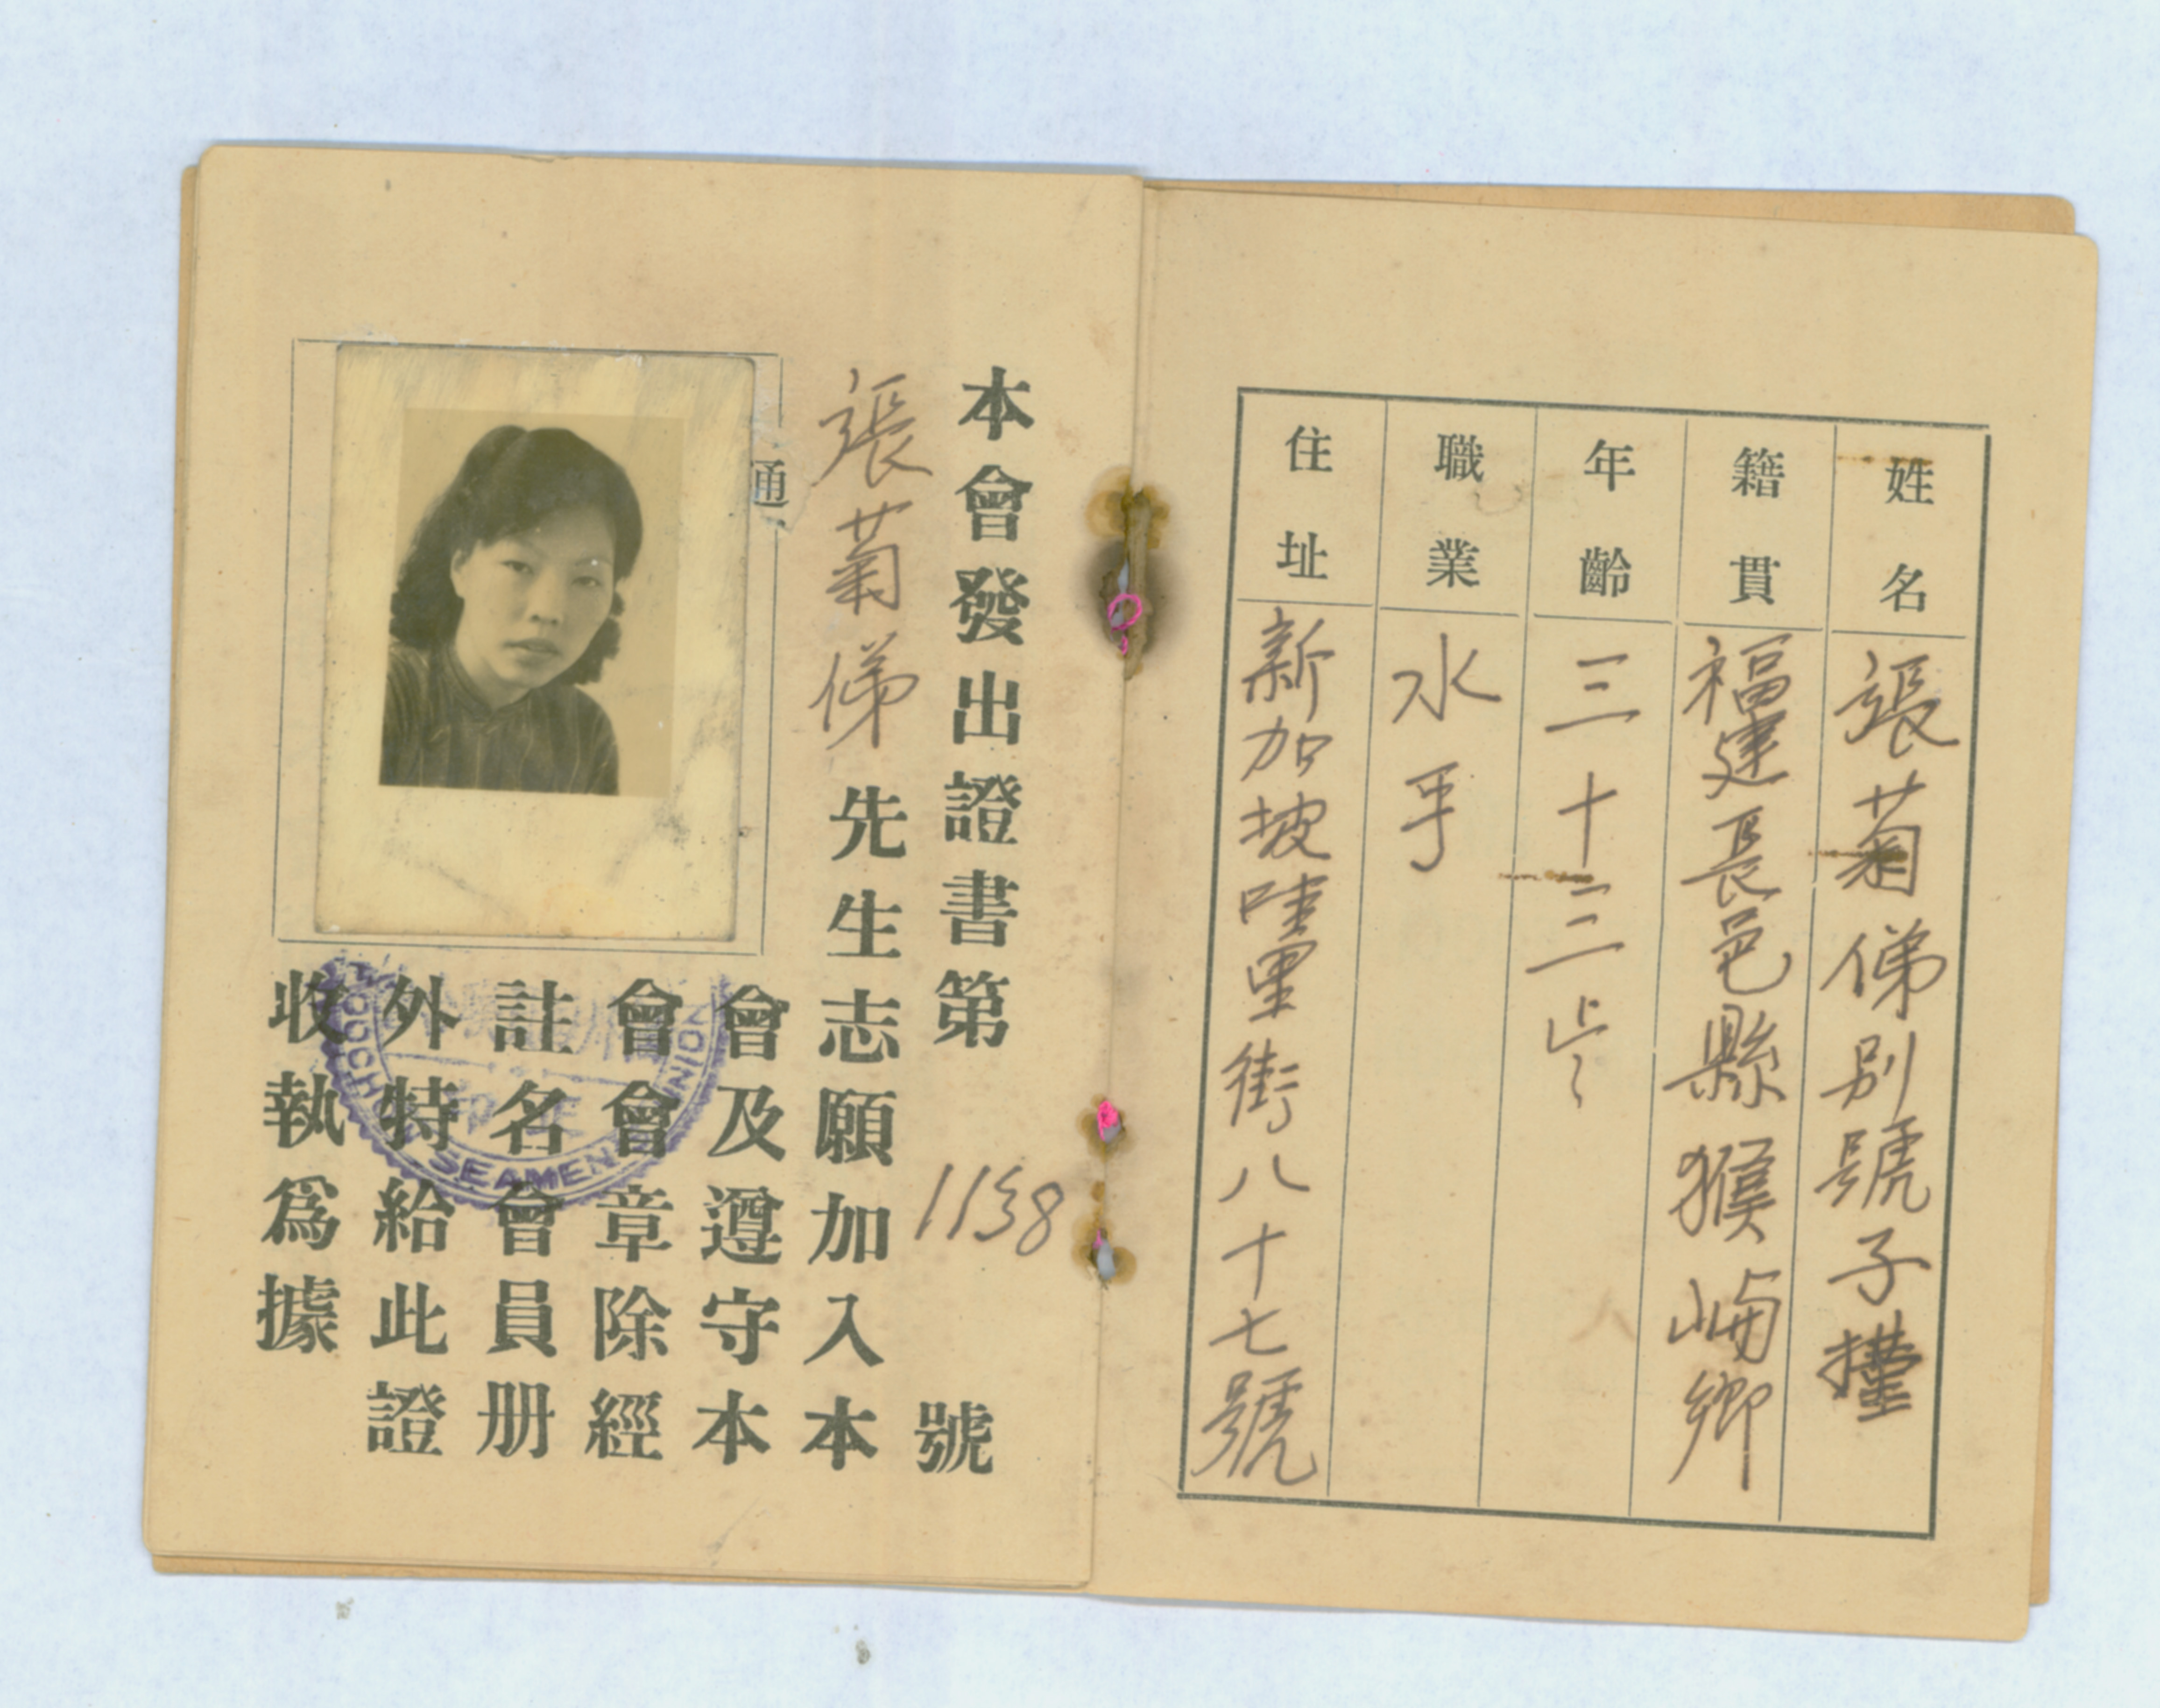 姓名 張菊俤別號子㩀
籍貫 福建長邑縣猴嶼鄉
年齡 三十三岁
職業 水手
住址 新加坡哇里街八十七號
本會發出證書第1158號
張菊俤先生志願加入本
會及遵守本
會會章除經
註名會員册
外特給此證
收執爲據
通
HOCCH
SEAMEN
UNION